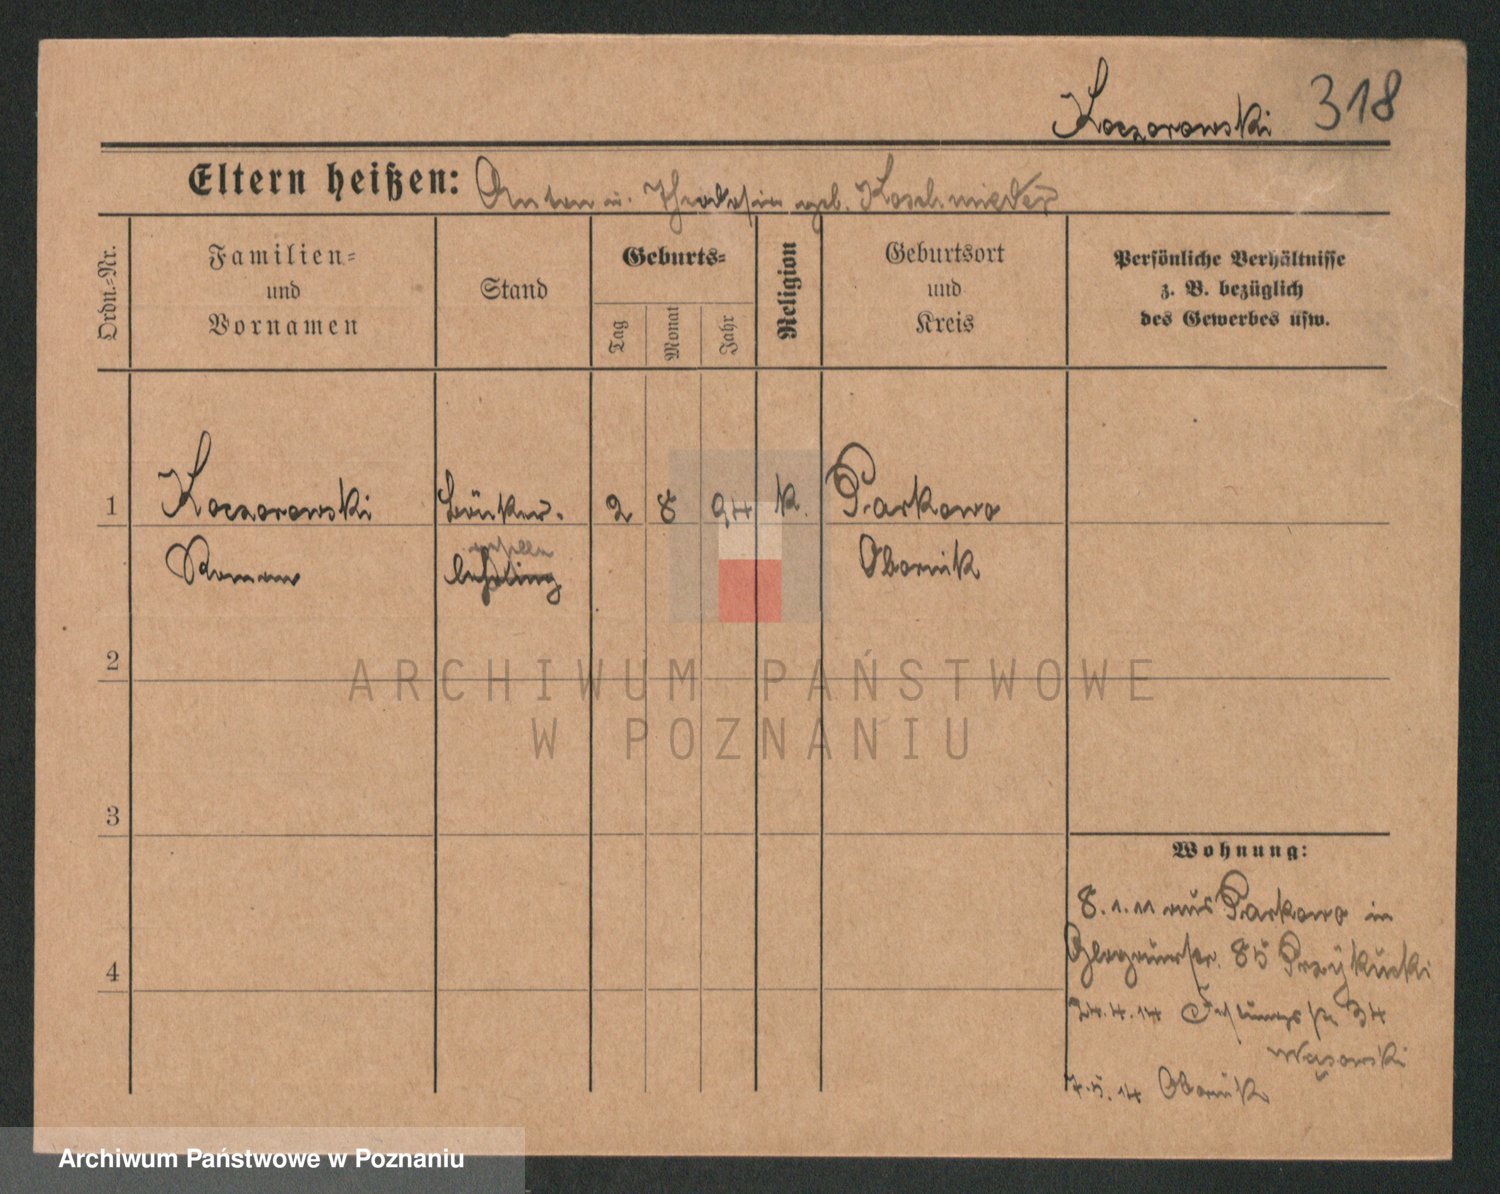 Koczorowski 318
Eltern heißen: Anton u. Theodosia geb. Koschmieder
Ordn.-Nr.
Familien-
und
Vornamen
Stand
Geburts-
Tag
Monat
Jahr
Religion
Geburtsort
und
Kreis
Persönliche Verhältnisse
z. B. bezüglich
des Gewerbes usw.
1 Koczorowski Bäcker- 2 8 94 k. Parkowo
geselle
Roman lehrling Obornik
2
ARCHIWUM PAŃSTWOWE
W POZNANIU
3
Wohnung:
8.1.11 aus Parkowo in
Glogauerstr. 85
4
24.4.14 34
Wąsowski
7.5.14 Obornik
Archiwum Państwowe w Poznaniu